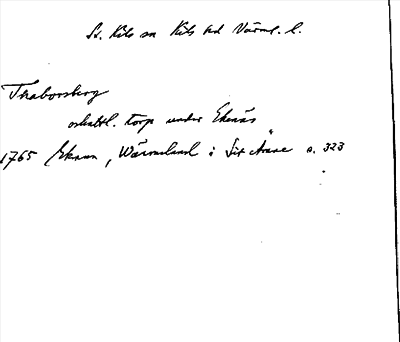 St. Kils sn Kils hd Värml. l.
Thaborsberg
oskattl. torp under Ekenäs
1765 Ekman, Wärmeland i Sitt Ämne s. 323